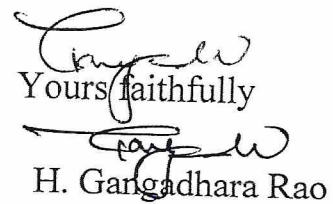 Yours faithfully
H. Gangadhara Rao